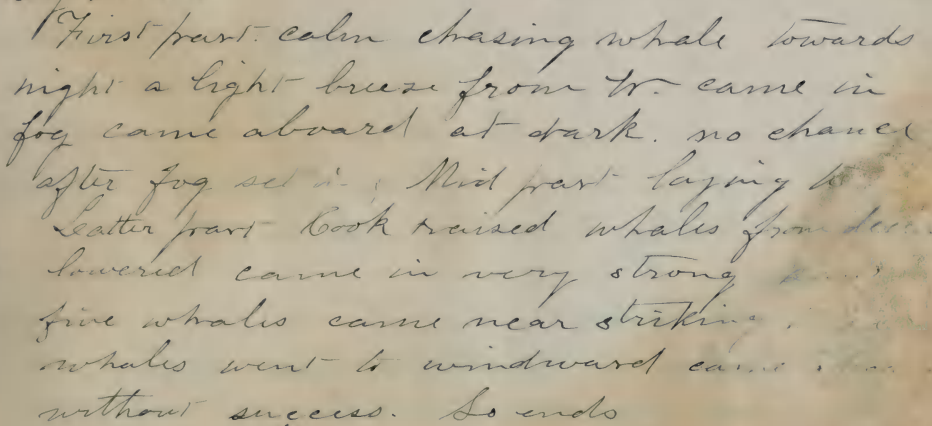 First part calm chasing whale towards
night a light breeze from W. came in
fog came aboard at dark. no chance
after fog set in. Mid part laying to
Latter part Cook raised whales from deck
lowered came in very strong
five whales came near striking
whales went to windward came
without success. So ends